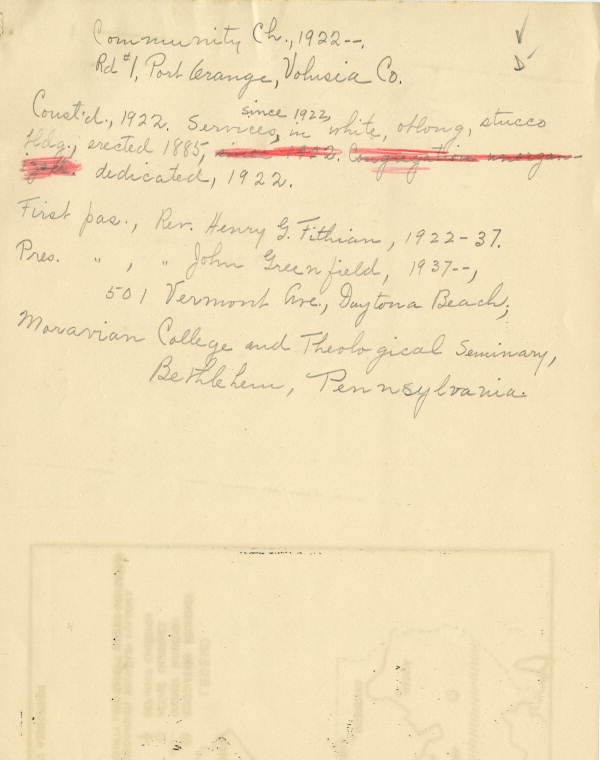 Community Ch., 1922--.
Rd #1, Port Orange, Volusia Co.
Const'd., 1922. Services, since 1922, in white, oblong, stucco
bldg., erected 1885, since 1922. Congregation unorgan-
ized. dedicated, 1922.
First pas., Rev. Henry G. Fithian, 1922-37.
Pres. " , " John Greenfield, 1937--,
501 Vermont Ave., Daytona Beach;
Moravian College and Theological Seminary,
Bethlehem, Pennsylvania.